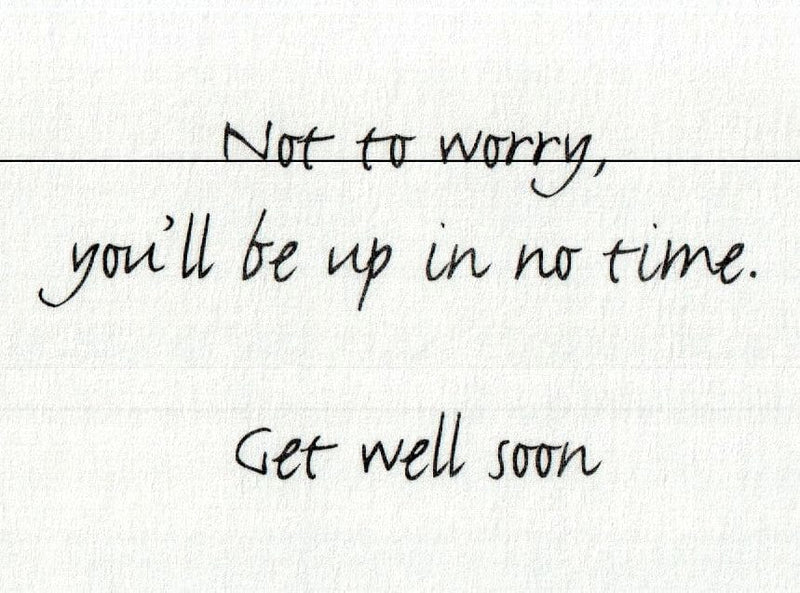 Not to worry,
you'll be up in no time.
Get well soon